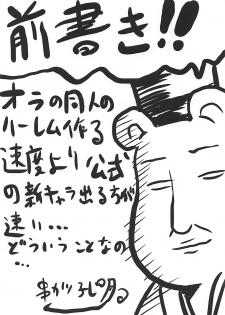 前書き!!
オラの同人の
ハーレム作る
速度より公式
の新キャラ出る方が
速い…
どういうことなの
…
串かつ孔明